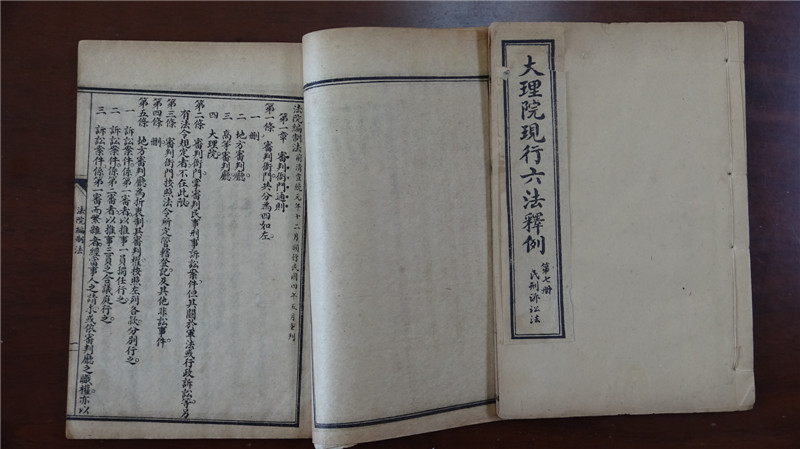 大理院現行六法釋例
第七册
民刑訴訟法
法院編制法 前清宣統元年十二月頒行民國四年六月重刊
第一章 審判衙門通則
第一條 審判衙門共分為四如左
一 刪
二 地方審判廳
三 高等審判廳
四 大理院
第二條 審判衙門掌審判民事刑事訴訟案件但其關於軍法或行政訴訟等另
有法令規定者不在此限
第三條 審判衙門按照法令所定管轄登記及其他非訟事件
第四條 刪
第五條 地方審判廳為折衷制其審判權按照左列各款分別行之
一 訴訟案件係第一審者以推事一員獨任行之
二 訴訟案件係第二審者以推事三員之合議庭行之
三 訴訟案件係第一審而繁雜者經當事人之請求或依審判廳之職權亦以
法院編制法
一